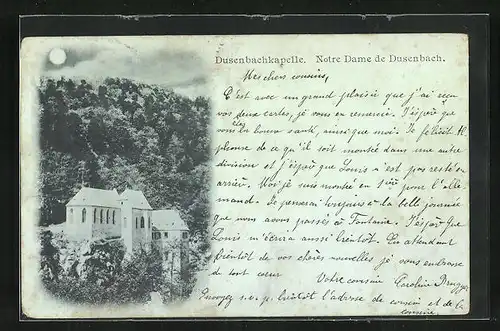 Dusenbachkapelle. Notre Dame de Dusenbach.
Mes chers cousins,
C'est avec un grand plaisir que j'ai reçu
vos deux cartes, je vous en remercie. J'espère que
vous êtes en bonne santé, ainsi que moi. Je félicite Al
phonse de ce qu'il soit monté dans une autre
division et j'espère que Louis n'est pas resté en
arrière. Moi je suis montée en 1ère pour l'alle-
mand. Je penserai toujours à la belle journée
que nous avons passée à Fontaine. J'espère que
Louis m'écrira aussi bientôt. En attendant
bientôt de vos chères nouvelles je vous embrasse
de tout cœur
Votre cousine Caroline
Envoyez s.v.p. bientôt l'adresse de cousin et de la
cousine.